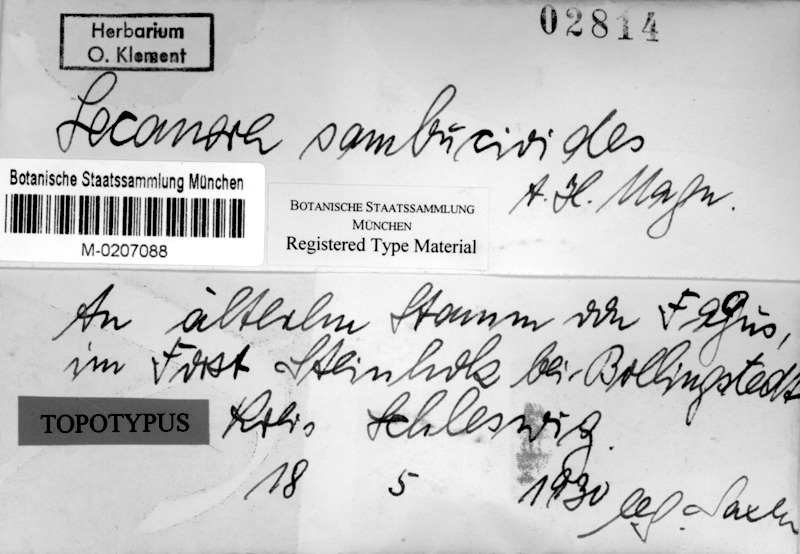 Herbarium
O. Klement
02814
Lecanora sambucioides
A. H. Magn.
Botanische Staatssammlung München
M-0207088
BOTANISCHE STAATSSAMMLUNG
MÜNCHEN
Registered Type Material
An älterem Stamm von Fagus,
im Forst Steinholz bei Bollingstedt
TOPOTYPUS
Kreis Schleswig
18 5 1930
leg. Saxen